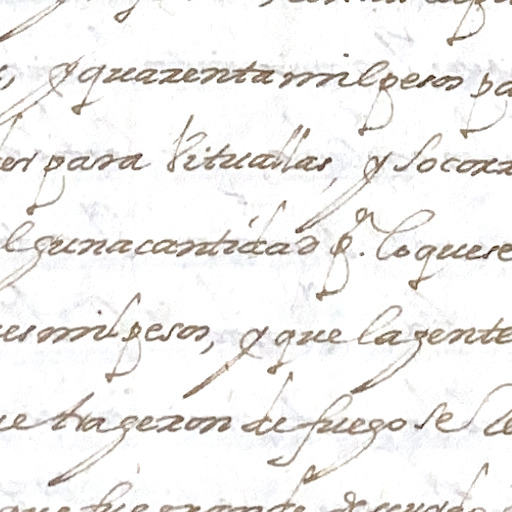 y quarenta mil pesos pa
para Vituallas, y socorr
lguna cantidad pª. lo que se
es mil pesos, y que la gente
ue tragexon de fuego se le